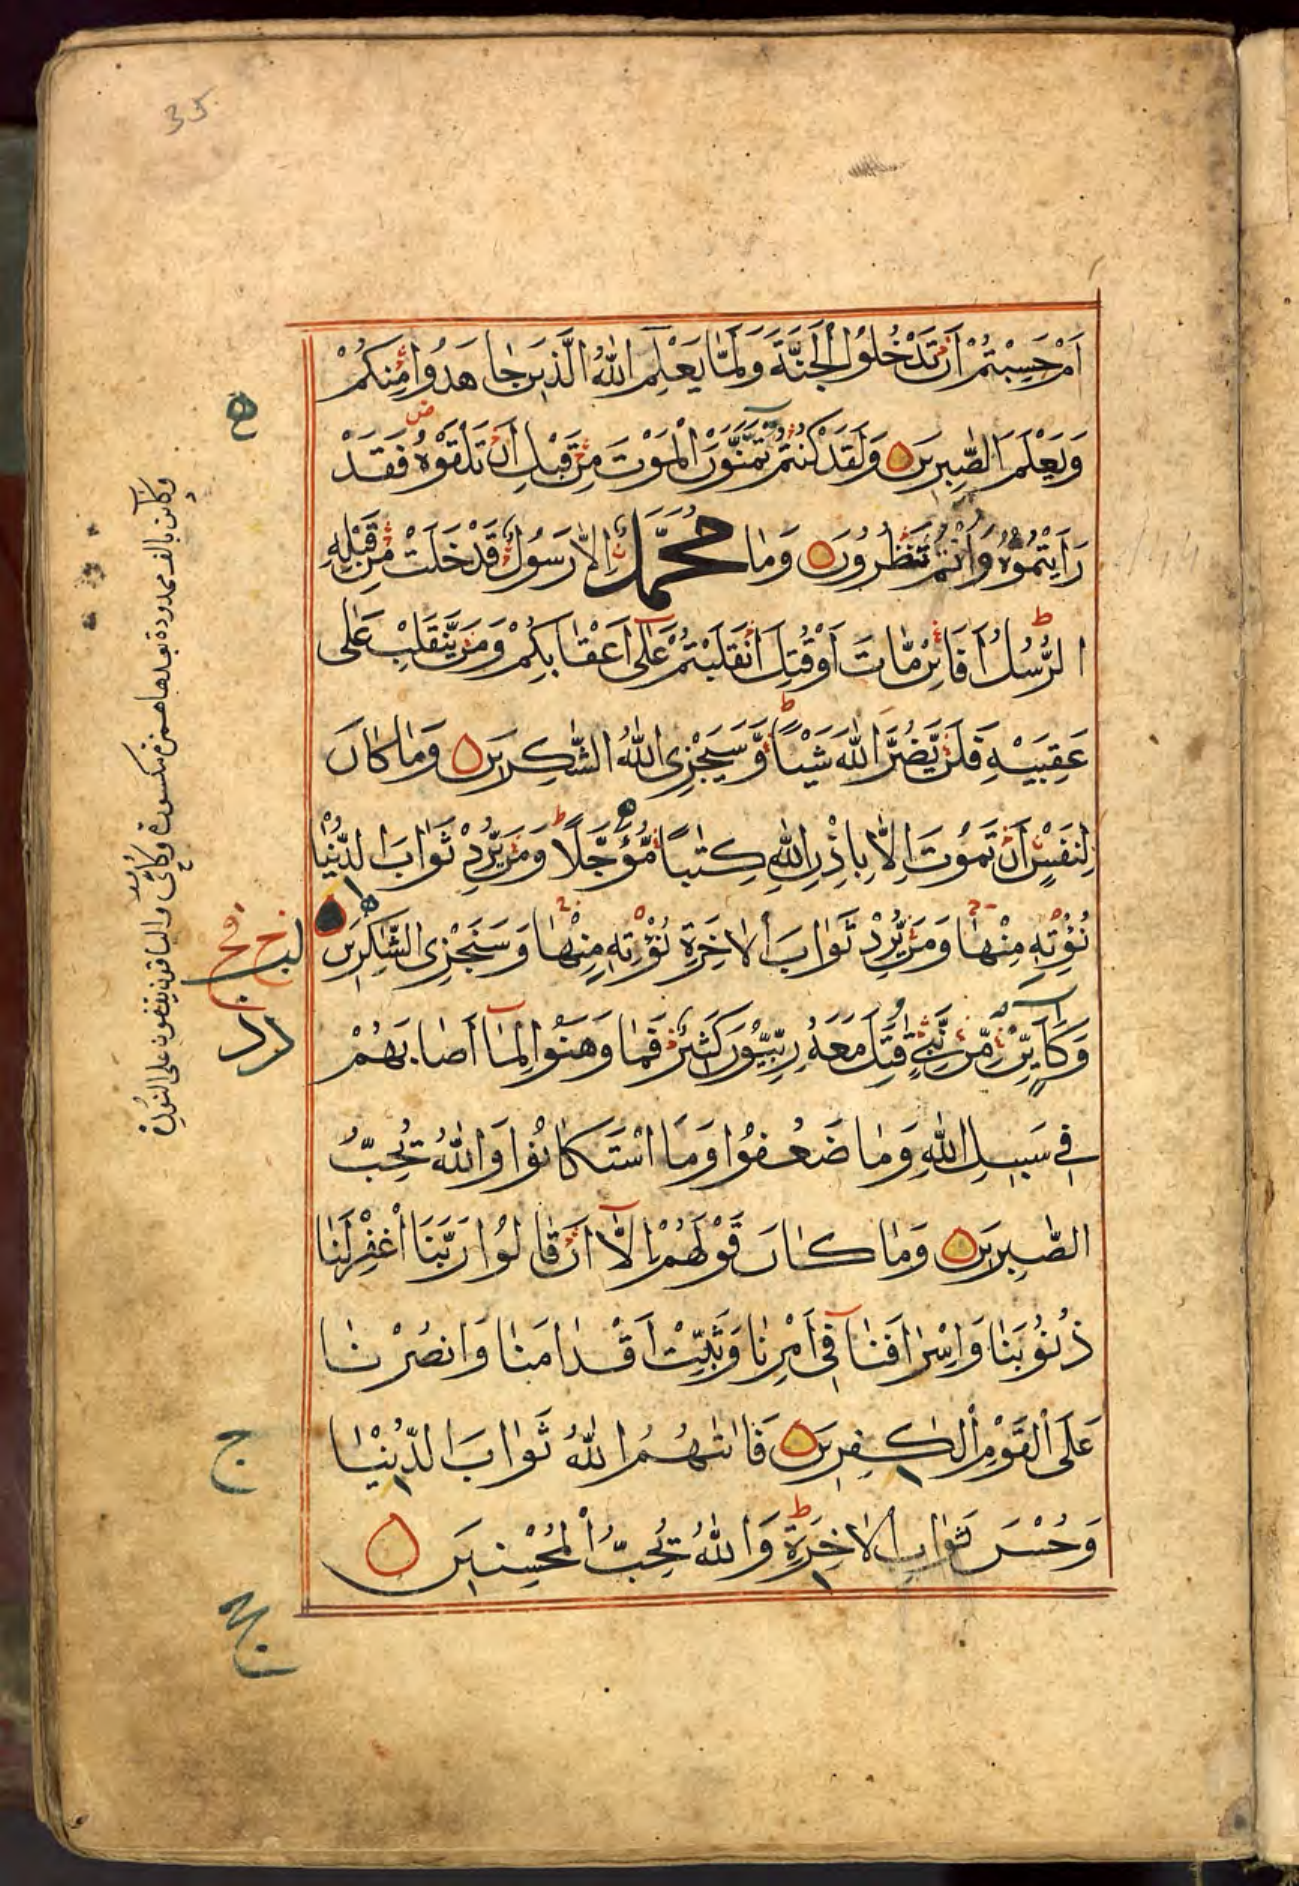 35
اَمْ حَسِبْتُمْ اَنْ تَدْخُلُوا الْجَنَّةَ وَلَمَّا يَعْلَمِ اللّٰهُ الَّذِينَ جَاهَدُوا مِنْكُمْ
وَيَعْلَمَ الصّٰبِرِينَ وَلَقَدْ كُنْتُمْ تَمَنَّوْنَ الْمَوْتَ مِنْ قَبْلِ اَنْ تَلْقَوْهُ فَقَدْ
رَاَيْتُمُوهُ وَاَنْتُمْ تَنْظُرُونَ وَمَا مُحَمَّدٌ اِلَّا رَسُولٌ قَدْ خَلَتْ مِنْ قَبْلِهِ
الرُّسُلُ اَفَائِنْ مَّاتَ اَوْ قُتِلَ انْقَلَبْتُمْ عَلٰى اَعْقَابِكُمْ وَمَنْ يَّنْقَلِبْ عَلٰى
عَقِبَيْهِ فَلَنْ يَّضُرَّ اللّٰهَ شَيْـًٔا وَّسَيَجْزِى اللّٰهُ الشّٰكِرِينَ وَمَا كَانَ
لِنَفْسٍ اَنْ تَمُوتَ اِلَّا بِاِذْنِ اللّٰهِ كِتٰبًا مُّؤَجَّلًا وَمَنْ يُّرِدْ ثَوَابَ الدُّنْيَا
نُؤْتِهِ مِنْهَا وَمَنْ يُّرِدْ ثَوَابَ الْاٰخِرَةِ نُؤْتِهِ مِنْهَا وَسَنَجْزِى الشّٰكِرِينَ
وَكَاَيِّنْ مِّنْ نَّبِيٍّ قٰتَلَ مَعَهُ رِبِّيُّونَ كَثِيرٌ فَمَا وَهَنُوا لِمَا اَصَابَهُمْ
فِي سَبِيلِ اللّٰهِ وَمَا ضَعُفُوا وَمَا اسْتَكَانُوا وَاللّٰهُ يُحِبُّ
الصّٰبِرِينَ وَمَا كَانَ قَوْلَهُمْ اِلَّا اَنْ قَالُوا رَبَّنَا اغْفِرْ لَنَا
ذُنُوبَنَا وَاِسْرَافَنَا فِي اَمْرِنَا وَثَبِّتْ اَقْدَامَنَا وَانْصُرْنَا
عَلَى الْقَوْمِ الْكٰفِرِينَ فَاٰتٰىهُمُ اللّٰهُ ثَوَابَ الدُّنْيَا
وَحُسْنَ ثَوَابِ الْاٰخِرَةِ وَاللّٰهُ يُحِبُّ الْمُحْسِنِينَ
وكآئن بالف ممدودة بعدها همزة مكسورة مكى والباقون يقفون على النون